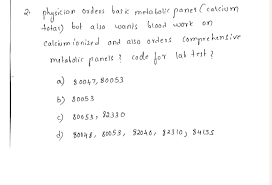 2. physician orders basic metabolic panel (calcium
total) but also wants blood work on
calcium ionised and also orders comprehensive
metabolic panels? code for lab test?
a) 80047, 80053
b) 80053
c) 80053, 82330
d) 80048, 80053, 82040, 82310, 84155